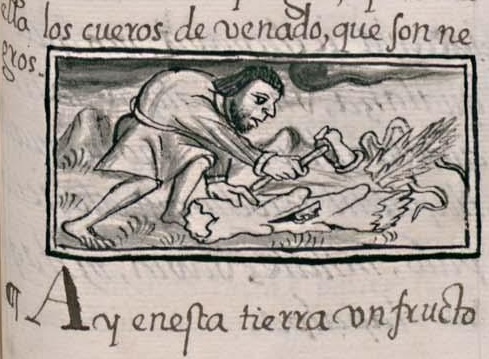 ella los cueros de venado, que son ne
gros.
¶ Ay enesta tierra vn fructo